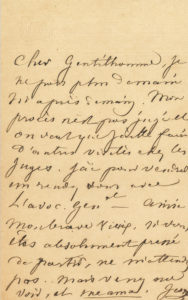 Cher Gentilhomme, je
ne puis plus demain
ni après demain. Mon
procès n'est pas jugé et
on veut que je fasse faire
d'autres visites chez les
Juges. J'ai pour vendredi
un rendez vous avec
l'avoc. Gen^al
Mon brave si vous
êtes absolument pressé
de partir, ne m'attendez
pas. Mais venez me
voir, et